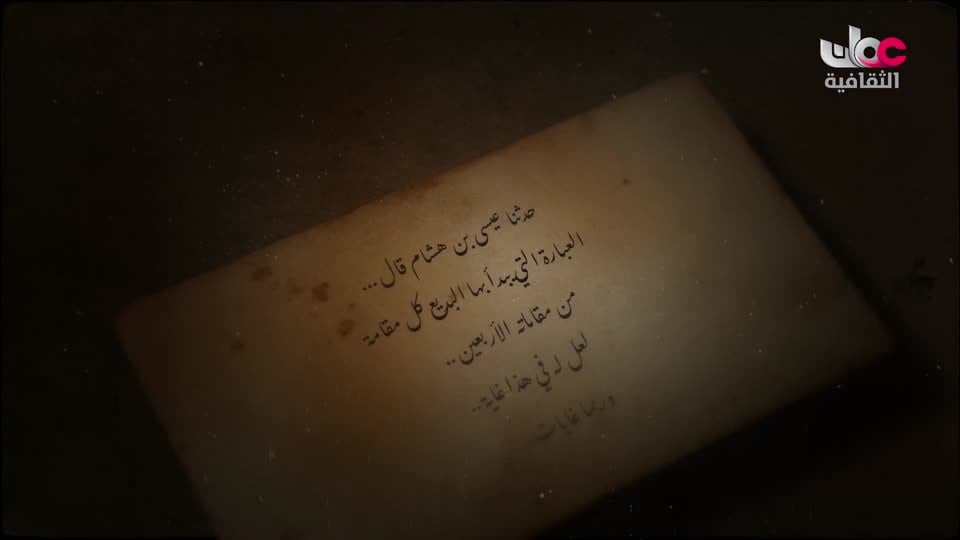 عمان
الثقافية
حدثنا عيسى بن هشام قال...
العبارة التي يبدأ بها البديع كل مقامة
من مقاماته الأربعين..
لعل له في هذا غاية..
وربما غايات